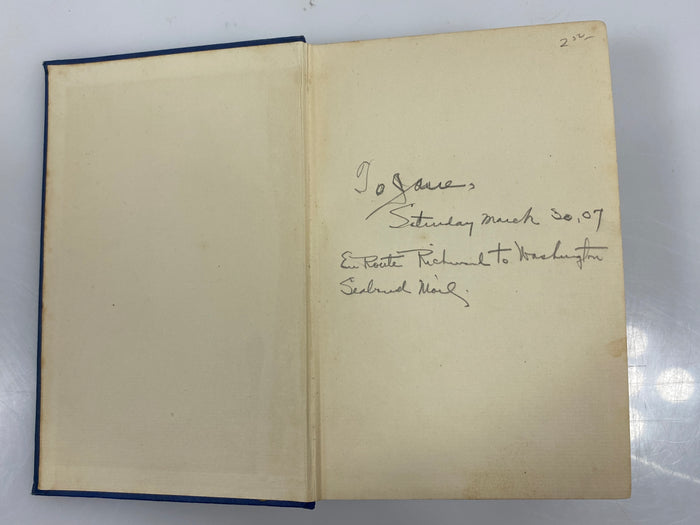 To Jane,
Saturday March 30, 07
En Route Richmond to Washington
Seaboard Mail,